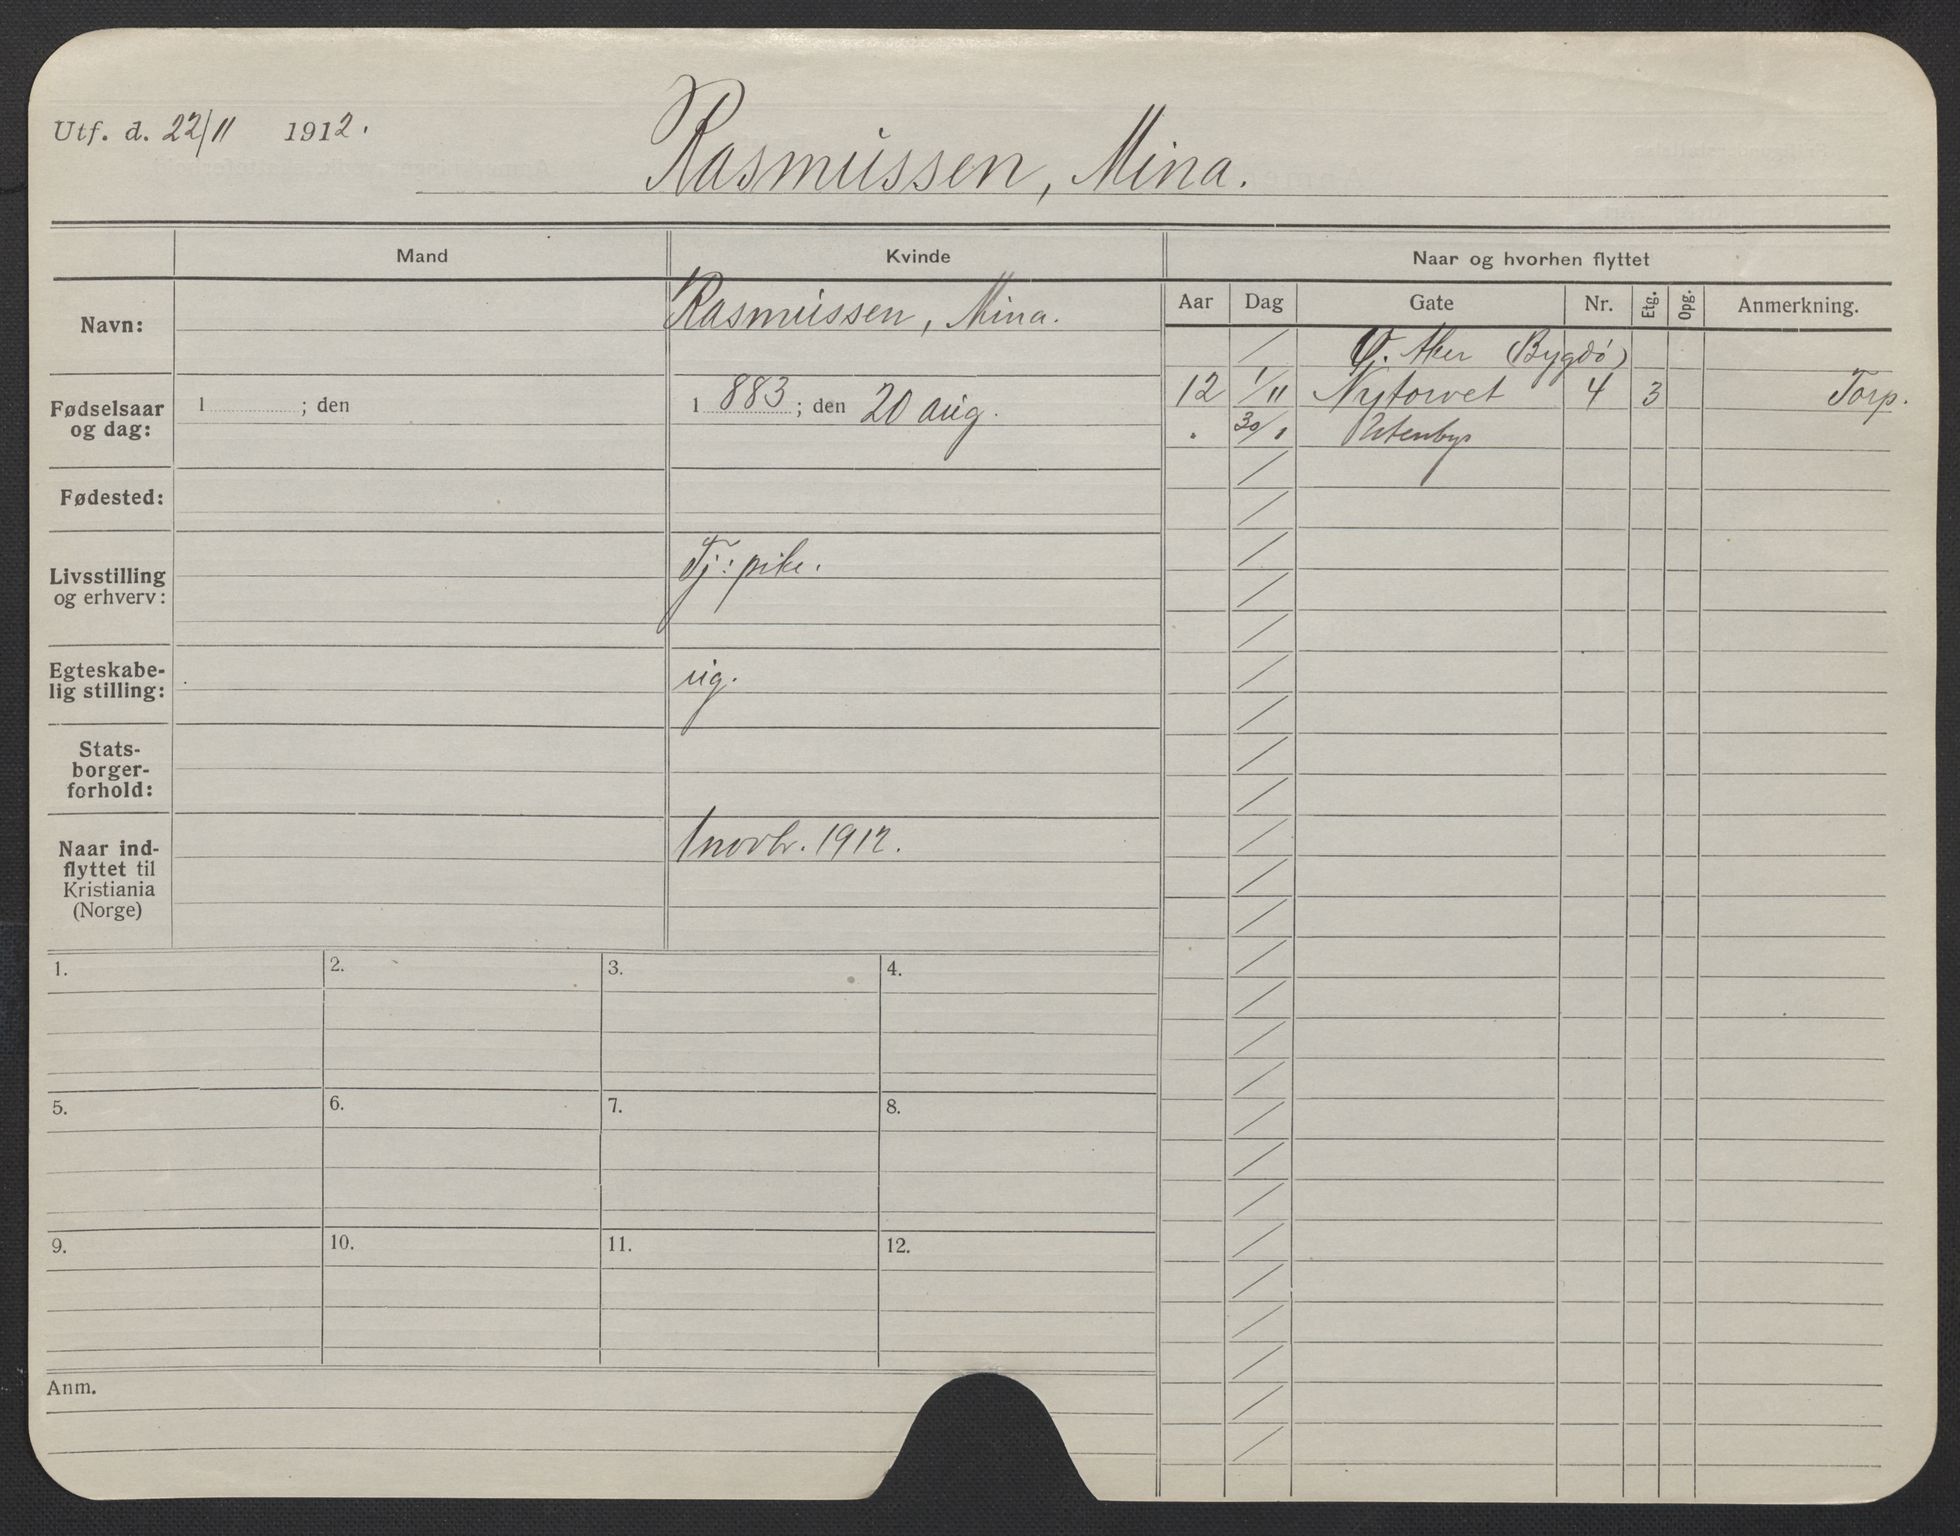 Utf. d. 22/11 1912.
Rasmussen, Mina.
Mand
Kvinde
Naar og hvorhen flyttet
Navn:
Rasmussen, Mina.
Aar Dag Gate Nr. Etg. Opg. Anmerkning.
V. Aker (Bygdö)
12 1/11 Nytorvet 4 3 Torp.
Fødselsaar og dag:
1 ; den
1 883 ; den 20 aug.
. 30/1 Utenbys
Fødested:
Livsstilling
og erhverv:
Tj: pike.
Egteskabe-
lig stilling:
ug.
Stats-
borger-
forhold:
Naar ind-
flyttet til
Kristiania
(Norge)
1 novbr. 1912.
1. 2. 3. 4.
5. 6. 7. 8.
9. 10. 11. 12.
Anm.